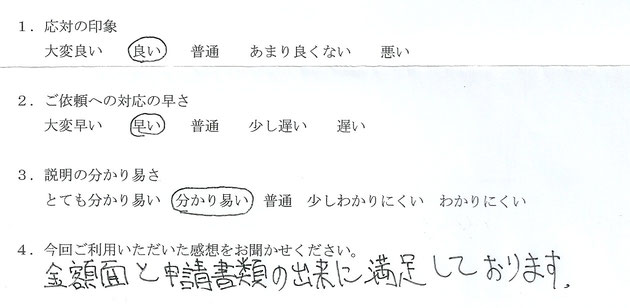 １．応対の印象
大変良い　良い　普通　あまり良くない　悪い
２．ご依頼への対応の早さ
大変早い　早い　普通　少し遅い　遅い
３．説明の分かり易さ
とても分かり易い　分かり易い　普通　少しわかりにくい　わかりにくい
４．今回ご利用いただいた感想をお聞かせください。
金額面と申請書類の出来に満足しております。